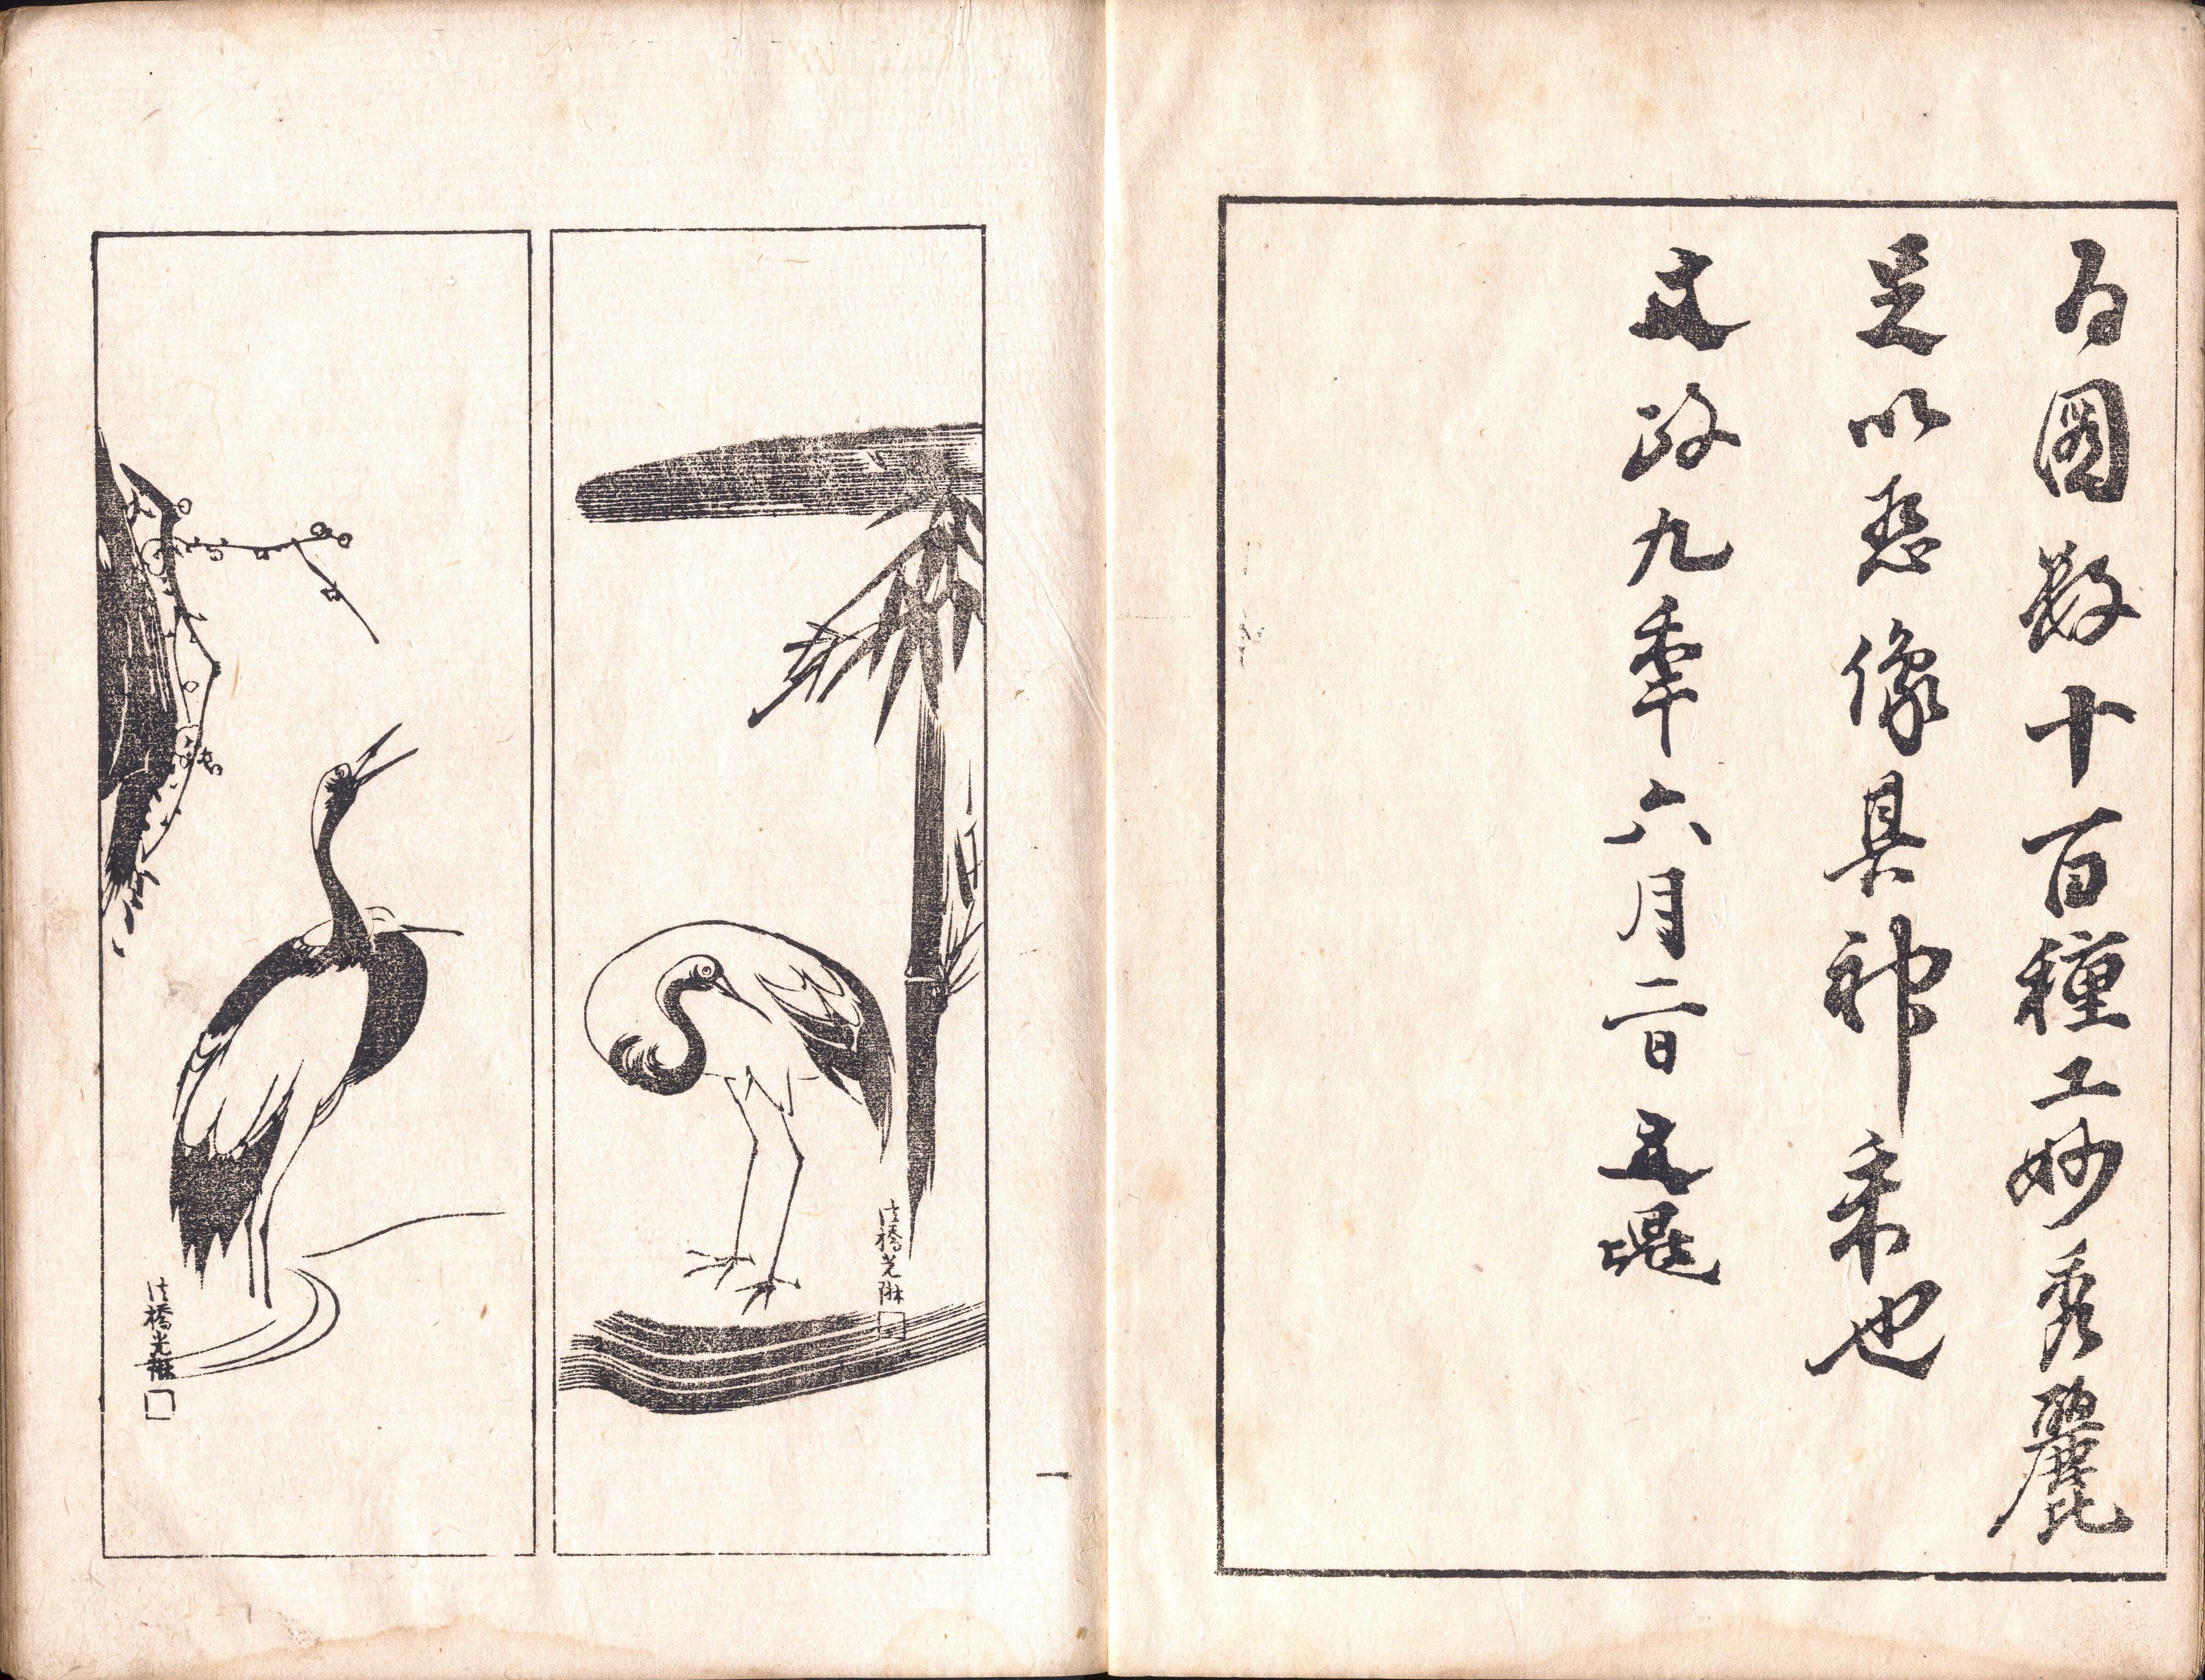 為圖数十百種工妙秀麗
足以悉像具神采也
文政九秊六月二日文晁
一
法橋光琳
法橋光琳